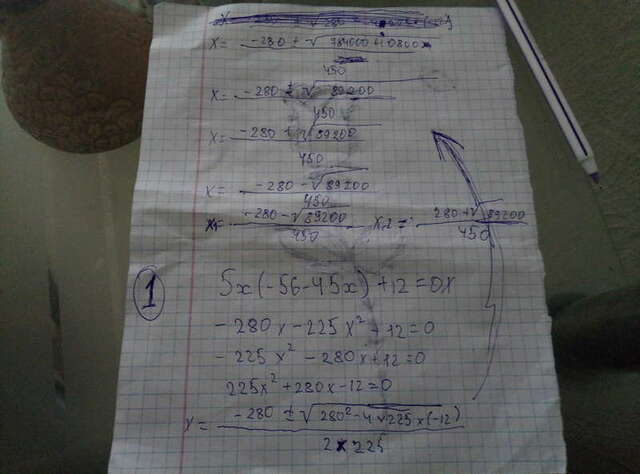 x = (-280 ± √(784000+10800)) / 450
x = (-280 ± √89200) / 450
x = (-280 ± √89200) / 450
x = (-280 - √89200) / 450
x₁ = (-280 - √89200) / 450 x₂ = (280 + √89200) / 450
1
5x(-56-45x)+12=0x
-280x-225x²+12=0
-225x²-280x+12=0
225x²+280x-12=0
x = (-280 ± √(280²-4√225x(-12))) / (2x225)